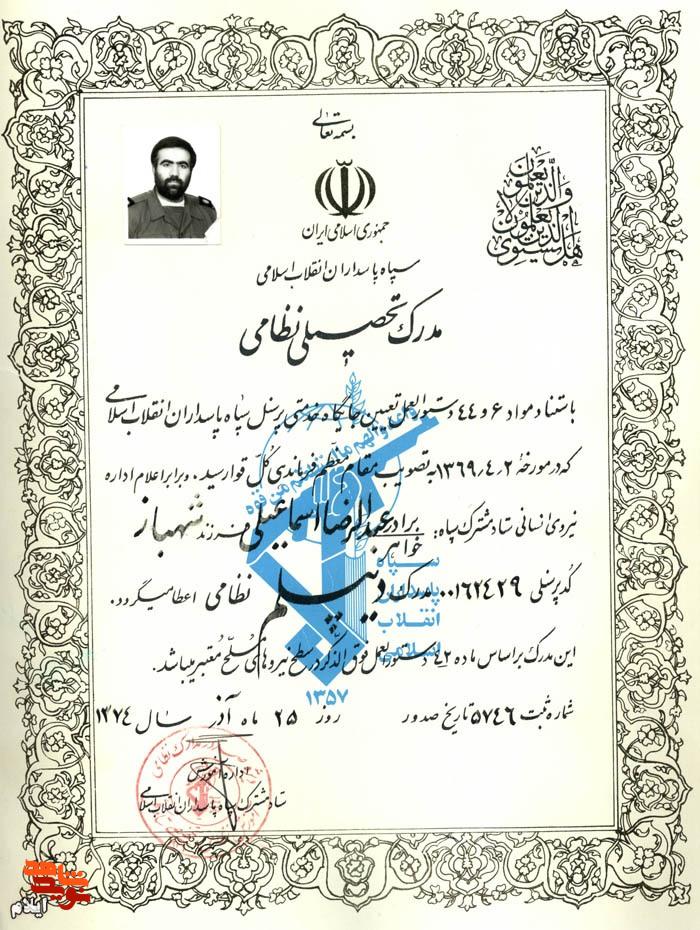 بسمه تعالی
هل یستوی الذین یعلمون والذین لا یعلمون
جمهوری اسلامی ایران
سپاه پاسداران انقلاب اسلامی
مدرک تحصیلی نظامی
باستناد مواد ۶ و ۴۴ دستورالعمل تعیین جایگاه خدمتی پرسنل سپاه پاسداران انقلاب اسلامی
که در مورخهٔ ۱۳۶۹،۴،۲ به تصویب مقام معظم فرماندهی کل قوا رسید، و برابر اعلام اداره
نیروی انسانی ستاد مشترک سپاه: برادر عبدالرضا اسماعیلی فرزند شهباز
خواهر
کد پرسنلی ۰۰۱۶۲۴۲۹ مدرک دیپلم نظامی اعطا میگردد.
این مدرک بر اساس ماده ۴۲ دستورالعمل فوق الذکر در سطح نیروهای مسلح معتبر میباشد.
شماره ثبت ۵۷۴۶ تاریخ صدور روز ۲۵ ماه آذر سال ۱۳۷۴
واعدوا لهم ما استطعتم من قوه
سپاه
پاسداران
انقلاب
اسلامی
۱۳۵۷
اداره آموزش
ستاد مشترک سپاه پاسداران انقلاب اسلامی
نوید شاهد
ایلام